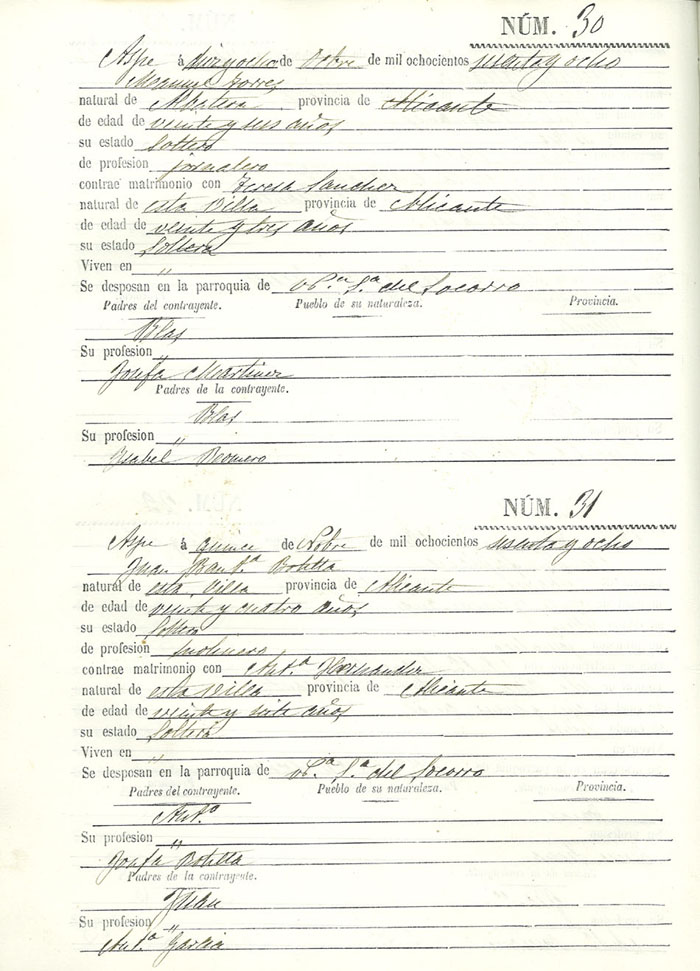 NÚM. 30
Aspe á diez y ocho de Octbre de mil ochocientos sesenta y ocho
Manuel Torres
natural de Albatera provincia de Alicante
de edad de veinte y seis años
su estado Soltero
de profesion jornalero
contrae matrimonio con Teresa Sanchez
natural de esta Villa provincia de Alicante
de edad de veinte y tres años
su estado Soltera
Viven en "
Se desposan en la parroquia de N.ª S.ª del Socorro
Padres del contrayente. Pueblo de su naturaleza. Provincia.
Blas
Su profesion "
Josefa Martinez
Padres de la contrayente.
Blas
Su profesion "
Ysabel Romero
NÚM. 31
Aspe á quince de Nobre de mil ochocientos sesenta y ocho
Juan Baut.ª Botella
natural de esta Villa provincia de Alicante
de edad de veinte y cuatro años
su estado Soltero
de profesion molinero
contrae matrimonio con Ant.ª Hernandez
natural de esta Villa provincia de Alicante
de edad de veinte y siete años
su estado Soltera
Viven en "
Se desposan en la parroquia de N.ª S.ª del Socorro
Padres del contrayente. Pueblo de su naturaleza. Provincia.
Ant.º
Su profesion "
Josefa Botella
Padres de la contrayente.
Juan
Su profesion "
Ant.ª Garcia